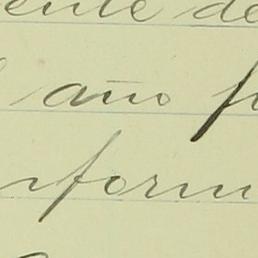 ente de
año f
nform